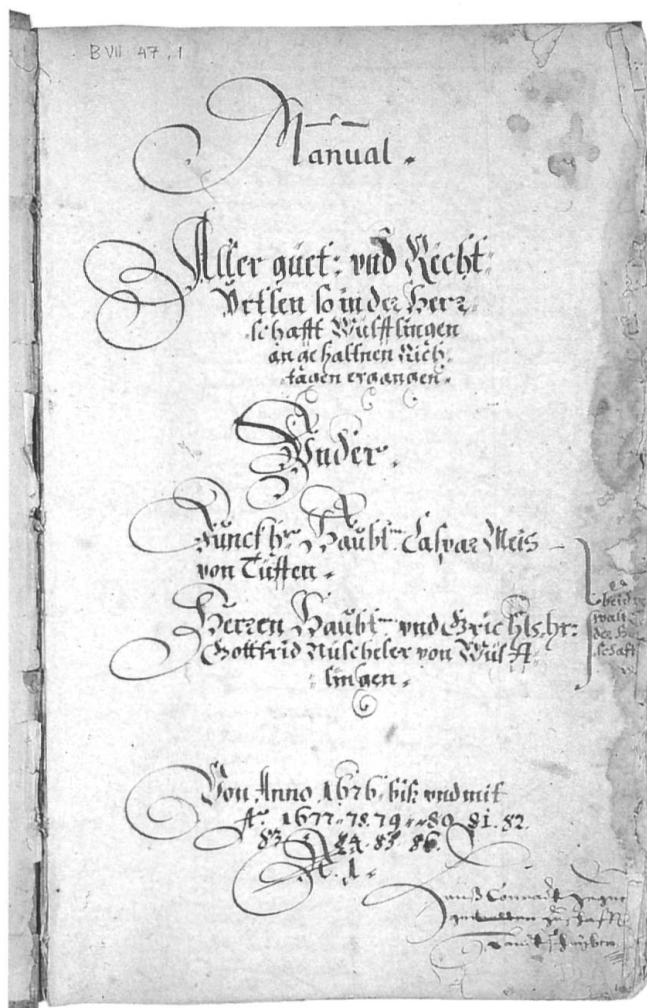 B VII 47,1
Manual.
Aller guet: vnd Recht:
Vrtlen so in der Herr:
schafft Wülfflingen
an gehaltnen Rich:
tägen ergangen.
Vnder.
Junckhr. Haubt. Caspar Meis
von Tüffen.
Herren Haubt. vnd Grichtshr:
Gottfrid Nüscheler von Wülff:
lingen.
beid
der
schafft
Von Anno 1676 biß vnd mit
Ao. 1677. 78. 79. 80. 81. 82.
83. 84. 85. 86.
N. 1.
Hanß Conradt